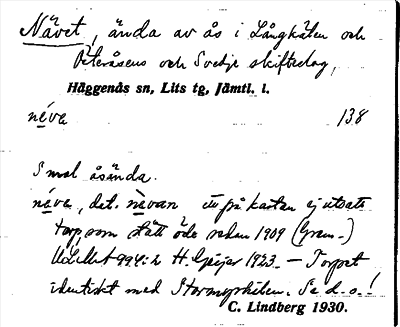 Nävet, ända av ås i Långkälen och
Österåsens och Svedje skifteslag,
Häggenås sn, Lits tg, Jämtl. l.
néve 138
Smal åsända.
néve, det. nèvan på kartan ej utsatt
torp, som stått öde sedan 1909 (Gran-)
ULMA 994:2 H. Geijer 1923. — Torpet
identiskt med Stormyrkälen. Se d. o.!
C. Lindberg 1930.